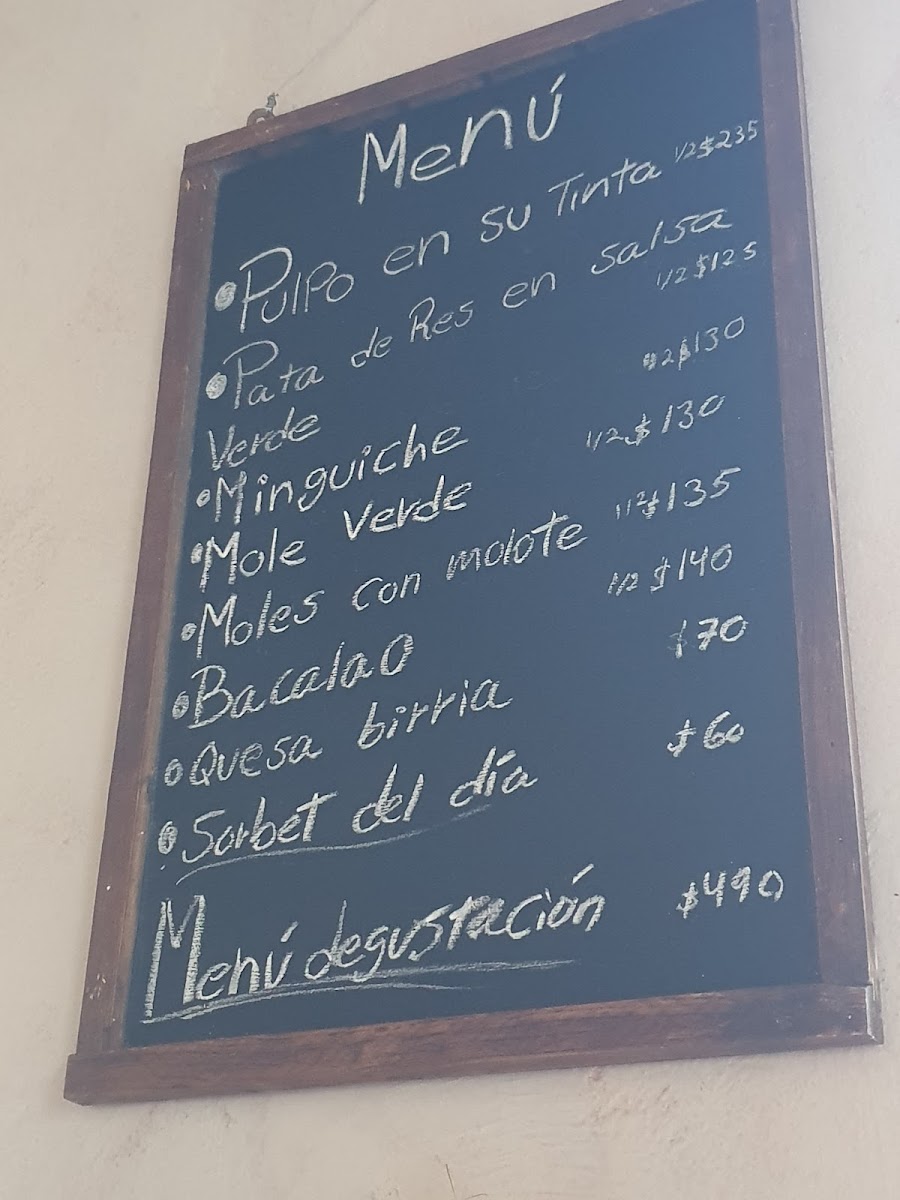 Menú
• Pulpo en su Tinta 1/2 $235
• Pata de Res en salsa
Verde 1/2 $125
• Minguiche 1/2 $130
• Mole verde 1/2 $130
• Moles con molote 1/2 $135
• Bacalao 1/2 $140
• Quesa birria $70
• Sorbet del día $60
Menú degustación $490